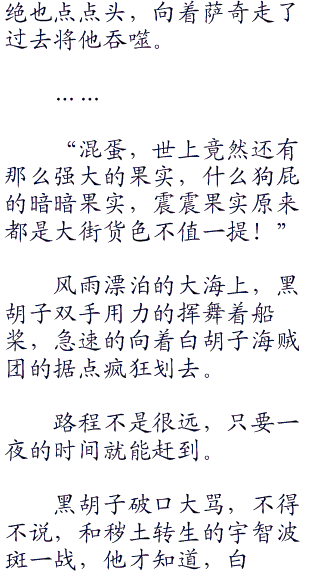 绝也点点头，向着萨奇走了
过去将他吞噬。
……
“混蛋，世上竟然还有
那么强大的果实，什么狗屁
的暗暗果实，震震果实原来
都是大街货色不值一提！”
风雨漂泊的大海上，黑
胡子双手用力的挥舞着船
桨，急速的向着白胡子海贼
团的据点疯狂划去。
路程不是很远，只要一
夜的时间就能赶到。
黑胡子破口大骂，不得
不说，和秽土转生的宇智波
斑一战，他才知道，白